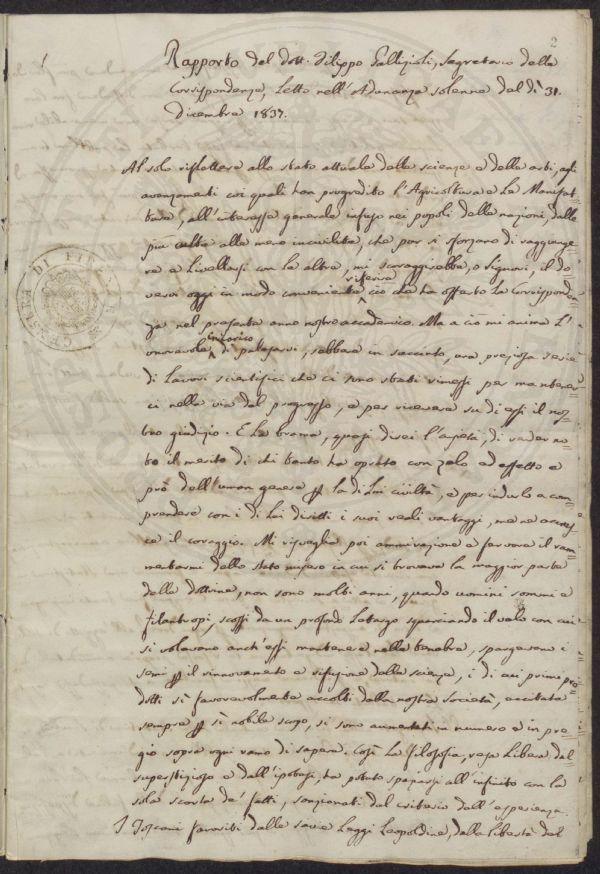 2
Rapporto del dott. Filippo Gallizioli, Segretario della
Corrispondenza, Letto nell'Adunanza solenne del dì 31.
Dicembre 1837.
Al solo riflettere allo stato attuale delle scienze e delle arti, agli
avanzamenti coi quali han progredito l'Agricoltura e La Manifat-
tura, all'interesse generale infuso nei popoli delle nazioni, dalle
più culte alle meno incivilite, che pur si sforzano di raggiunge-
re e Livellarsi con le altre, mi scoraggirebbe, o Signori, il do-
riferire
vervi oggi in modo conveniente ciò che ha offerto La Corrisponden-
za nel presente anno nostro accademico. Ma a ciò mi anima L'
incarico
onorevole di palesarvi, sebbene in succinto, una preziosa serie
di Lavori scientifici che ci sono stati rimessi per mantener-
ci nella via del progresso, e per ricevere su di essi il nos-
tro giudizio. E La brama, quasi direi l'avidità, di render no-
to il merito di chi tanto ha oprato con zelo ed effetto a
prò dell'uman genere per la di Lui civiltà, e per indurlo a com-
prendere con i di Lui diritti i suoi reali vantaggi, me ne accres-
ce il coraggio. Mi risveglia poi ammirazione e fervore il ram-
mentarmi dello stato misero in cui si trovava la maggior parte
delle dottrine, non sono molti anni, quando uomini sommi e
filantropi, scossi da un profondo Letargo squarciando il velo con cui
si volevano anch'essi mantenere nelle tenebre, spargevano i
semi per il rinnovamento e rifusione delle scienze, i di cui primi pro-
dotti sì favorevolmente accolti dalla nostra Società, eccitata
sempre per sì nobile scopo, si sono aumentati in numero ed in pre-
gio sopra ogni ramo di sapere. Così La filosofia, resa Libera dal
superstizioso e dall'ipotesi, ha potuto spaziarsi all'infinito con la
sola scorta de' fatti, sanzionati dal criterio dell'esperienza.
I Toscani favoriti dalle savie Leggi Leopoldine, dalla libertà del